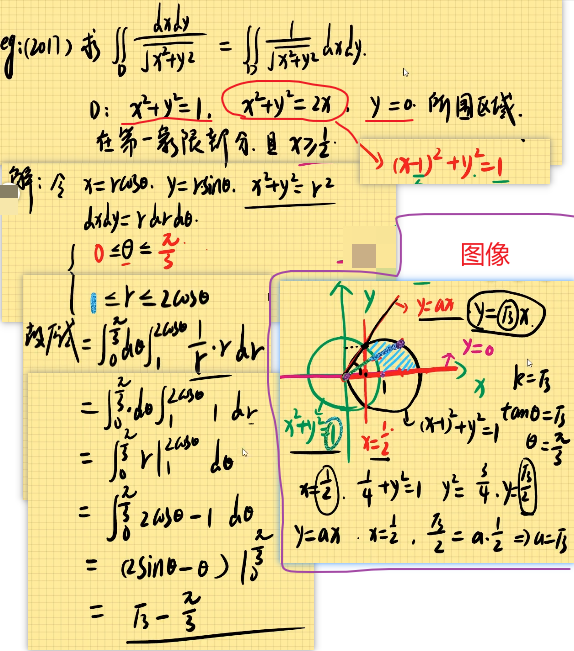 eg:(2017) 求 ∬_D dxdy/√(x²+y²) = ∬_D 1/√(x²+y²) dxdy.
D: x²+y²=1, x²+y²=2x. y=0. 所围区域.
在第一象限部分.且 x≥1/2.
(x-1)²+y²=1
解: 令 x=rcosθ. y=rsinθ. x²+y²=r²
dxdy=rdrdθ.
{ 0≤θ≤π/3
1≤r≤2cosθ
图像
故原式=∫_0^(π/3) dθ ∫_1^(2cosθ) 1/r · r dr
=∫_0^(π/3) · dθ ∫_1^(2cosθ) 1 dr
=∫_0^(π/3) r|_1^(2cosθ) dθ
=∫_0^(π/3) 2cosθ-1 dθ
= (2sinθ-θ)|_0^(π/3)
= √3 - π/3
y
y=ax
y=√3x.
y=0
x
1
k=√3
x²+y²=1
x=1/2
(x-1)²+y²=1
tanθ=√3
θ=π/3
x=1/2. 1/4+y²=1 y²=3/4. y=√3/2
y=ax . x=1/2. √3/2=a·1/2 ⇒a=√3